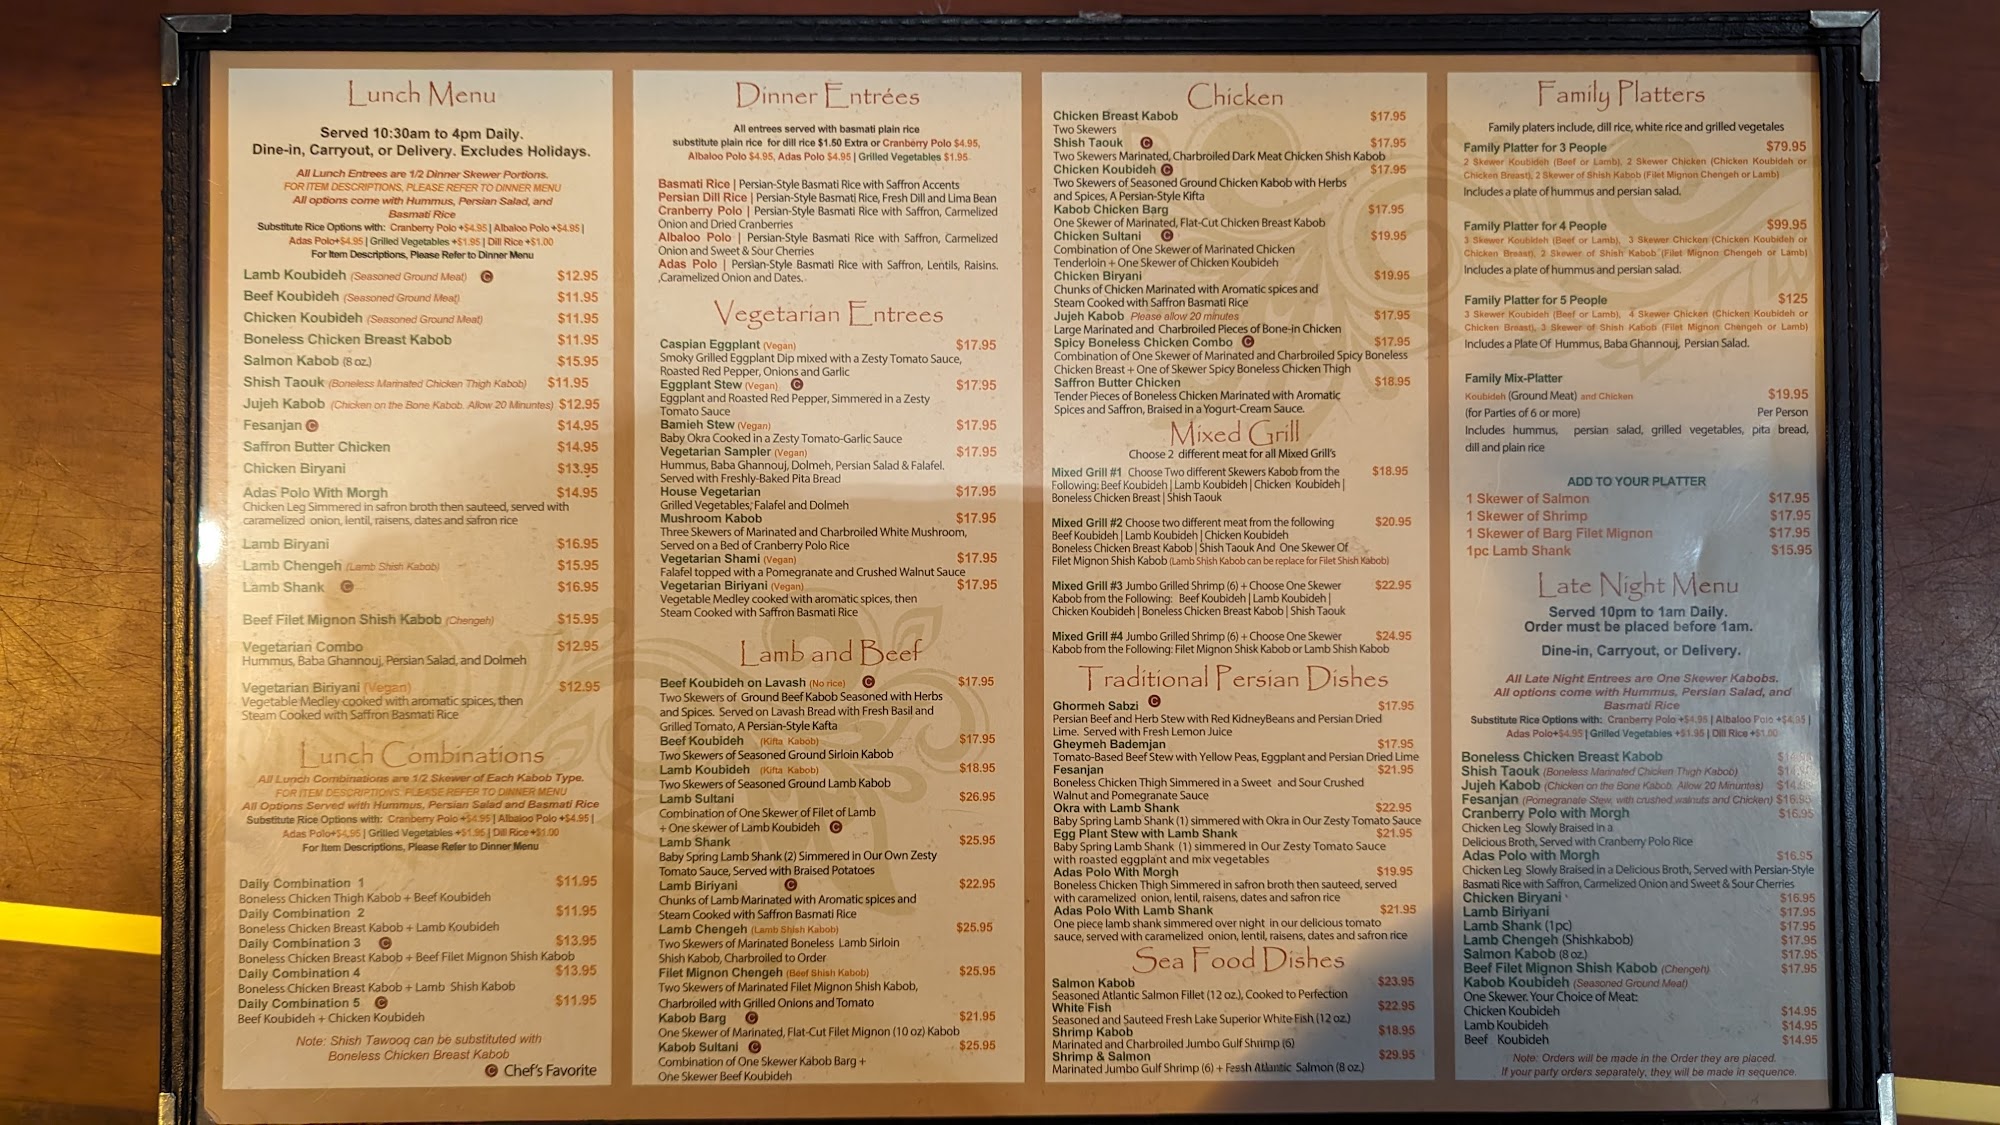 Lunch Menu
Served 10:30am to 4pm Daily.
Dine-in, Carryout, or Delivery. Excludes Holidays.
All Lunch Entrees are 1/2 Dinner Skewer Portions.
FOR ITEM DESCRIPTIONS, PLEASE REFER TO DINNER MENU
All options come with Hummus, Persian Salad, and
Basmati Rice
Substitute Rice Options with: Cranberry Polo +$4.95 | Albaloo Polo +$4.95 |
Adas Polo+$4.95 | Grilled Vegetables +$1.95 | Dill Rice +$1.00
For Item Descriptions, Please Refer to Dinner Menu
Lamb Koubideh (Seasoned Ground Meat) C $12.95
Beef Koubideh (Seasoned Ground Meat) $11.95
Chicken Koubideh (Seasoned Ground Meat) $11.95
Boneless Chicken Breast Kabob $11.95
Salmon Kabob (8 oz.) $15.95
Shish Taouk (Boneless Marinated Chicken Thigh Kabob) $11.95
Jujeh Kabob (Chicken on the Bone Kabob. Allow 20 Minuntes) $12.95
Fesanjan C $14.95
Saffron Butter Chicken $14.95
Chicken Biryani $13.95
Adas Polo With Morgh $14.95
Chicken Leg Simmered in safron broth then sauteed, served with
caramelized onion, lentil, raisens, dates and safron rice
Lamb Biryani $16.95
Lamb Chengeh (Lamb Shish Kabob) $15.95
Lamb Shank C $16.95
Beef Filet Mignon Shish Kabob (Chengeh) $15.95
Vegetarian Combo $12.95
Hummus, Baba Ghannouj, Persian Salad, and Dolmeh
Vegetarian Biriyani (Vegan) $12.95
Vegetable Medley cooked with aromatic spices, then
Steam Cooked with Saffron Basmati Rice
Lunch Combinations
All Lunch Combinations are 1/2 Skewer of Each Kabob Type.
FOR ITEM DESCRIPTIONS, PLEASE REFER TO DINNER MENU
All Options Served with Hummus, Persian Salad and Basmati Rice
Substitute Rice Options with: Cranberry Polo +$4.95 | Albaloo Polo +$4.95 |
Adas Polo+$4.95 | Grilled Vegetables +$1.95 | Dill Rice +$1.00
For Item Descriptions, Please Refer to Dinner Menu
Daily Combination 1 $11.95
Boneless Chicken Thigh Kabob + Beef Koubideh
Daily Combination 2 $11.95
Boneless Chicken Breast Kabob + Lamb Koubideh
Daily Combination 3 C $13.95
Boneless Chicken Breast Kabob + Beef Filet Mignon Shish Kabob
Daily Combination 4 $13.95
Boneless Chicken Breast Kabob + Lamb Shish Kabob
Daily Combination 5 C $11.95
Beef Koubideh + Chicken Koubideh
Note: Shish Tawooq can be substituted with
Boneless Chicken Breast Kabob
C Chef's Favorite
Dinner Entrées
All entrees served with basmati plain rice
substitute plain rice for dill rice $1.50 Extra or Cranberry Polo $4.95,
Albaloo Polo $4.95, Adas Polo $4.95 | Grilled Vegetables $1.95
Basmati Rice | Persian-Style Basmati Rice with Saffron Accents
Persian Dill Rice | Persian-Style Basmati Rice, Fresh Dill and Lima Bean
Cranberry Polo | Persian-Style Basmati Rice with Saffron, Carmelized
Onion and Dried Cranberries
Albaloo Polo | Persian-Style Basmati Rice with Saffron, Carmelized
Onion and Sweet & Sour Cherries
Adas Polo | Persian-Style Basmati Rice with Saffron, Lentils, Raisins.
,Caramelized Onion and Dates.
Vegetarian Entrees
Caspian Eggplant (Vegan) $17.95
Smoky Grilled Eggplant Dip mixed with a Zesty Tomato Sauce,
Roasted Red Pepper, Onions and Garlic
Eggplant Stew (Vegan) C $17.95
Eggplant and Roasted Red Pepper, Simmered in a Zesty
Tomato Sauce
Bamieh Stew (Vegan) $17.95
Baby Okra Cooked in a Zesty Tomato-Garlic Sauce
Vegetarian Sampler (Vegan) $17.95
Hummus, Baba Ghannouj, Dolmeh, Persian Salad & Falafel.
Served with Freshly-Baked Pita Bread
House Vegetarian $17.95
Grilled Vegetables, Falafel and Dolmeh
Mushroom Kabob $17.95
Three Skewers of Marinated and Charbroiled White Mushroom,
Served on a Bed of Cranberry Polo Rice
Vegetarian Shami (Vegan) $17.95
Falafel topped with a Pomegranate and Crushed Walnut Sauce
Vegetarian Biriyani (Vegan) $17.95
Vegetable Medley cooked with aromatic spices, then
Steam Cooked with Saffron Basmati Rice
Lamb and Beef
Beef Koubideh on Lavash (No rice) C $17.95
Two Skewers of Ground Beef Kabob Seasoned with Herbs
and Spices. Served on Lavash Bread with Fresh Basil and
Grilled Tomato, A Persian-Style Kafta
Beef Koubideh (Kifta Kabob) $17.95
Two Skewers of Seasoned Ground Sirloin Kabob
Lamb Koubideh (Kifta Kabob) $18.95
Two Skewers of Seasoned Ground Lamb Kabob
Lamb Sultani $26.95
Combination of One Skewer of Filet of Lamb
+ One skewer of Lamb Koubideh C
Lamb Shank $25.95
Baby Spring Lamb Shank (2) Simmered in Our Own Zesty
Tomato Sauce, Served with Braised Potatoes
Lamb Biriyani C $22.95
Chunks of Lamb Marinated with Aromatic spices and
Steam Cooked with Saffron Basmati Rice
Lamb Chengeh (Lamb Shish Kabob) $25.95
Two Skewers of Marinated Boneless Lamb Sirloin
Shish Kabob, Charbroiled to Order
Filet Mignon Chengeh (Beef Shish Kabob) $25.95
Two Skewers of Marinated Filet Mignon Shish Kabob,
Charbroiled with Grilled Onions and Tomato
Kabob Barg C $21.95
One Skewer of Marinated, Flat-Cut Filet Mignon (10 oz) Kabob
Kabob Sultani C $25.95
Combination of One Skewer Kabob Barg +
One Skewer Beef Koubideh
Chicken
Chicken Breast Kabob $17.95
Two Skewers
Shish Taouk C $17.95
Two Skewers Marinated, Charbroiled Dark Meat Chicken Shish Kabob
Chicken Koubideh C $17.95
Two Skewers of Seasoned Ground Chicken Kabob with Herbs
and Spices, A Persian-Style Kifta
Kabob Chicken Barg $17.95
One Skewer of Marinated, Flat-Cut Chicken Breast Kabob
Chicken Sultani C $19.95
Combination of One Skewer of Marinated Chicken
Tenderloin + One Skewer of Chicken Koubideh
Chicken Biryani $19.95
Chunks of Chicken Marinated with Aromatic spices and
Steam Cooked with Saffron Basmati Rice
Jujeh Kabob Please allow 20 minutes $17.95
Large Marinated and Charbroiled Pieces of Bone-in Chicken
Spicy Boneless Chicken Combo C $17.95
Combination of One Skewer of Marinated and Charbroiled Spicy Boneless
Chicken Breast + One of Skewer Spicy Boneless Chicken Thigh
Saffron Butter Chicken $18.95
Tender Pieces of Boneless Chicken Marinated with Aromatic
Spices and Saffron, Braised in a Yogurt-Cream Sauce.
Mixed Grill
Choose 2 different meat for all Mixed Grill's
Mixed Grill #1 Choose Two different Skewers Kabob from the $18.95
Following: Beef Koubideh | Lamb Koubideh | Chicken Koubideh |
Boneless Chicken Breast | Shish Taouk
Mixed Grill #2 Choose two different meat from the following $20.95
Beef Koubideh | Lamb Koubideh | Chicken Koubideh
Boneless Chicken Breast Kabob | Shish Taouk And One Skewer Of
Filet Mignon Shish Kabob (Lamb Shish Kabob can be replace for Filet Shish Kabob)
Mixed Grill #3 Jumbo Grilled Shrimp (6) + Choose One Skewer $22.95
Kabob from the Following: Beef Koubideh | Lamb Koubideh |
Chicken Koubideh | Boneless Chicken Breast Kabob | Shish Taouk
Mixed Grill #4 Jumbo Grilled Shrimp (6) + Choose One Skewer $24.95
Kabob from the Following: Filet Mignon Shisk Kabob or Lamb Shish Kabob
Traditional Persian Dishes
Ghormeh Sabzi C $17.95
Persian Beef and Herb Stew with Red KidneyBeans and Persian Dried
Lime. Served with Fresh Lemon Juice
Gheymeh Bademjan $17.95
Tomato-Based Beef Stew with Yellow Peas, Eggplant and Persian Dried Lime
Fesanjan $21.95
Boneless Chicken Thigh Simmered in a Sweet and Sour Crushed
Walnut and Pomegranate Sauce
Okra with Lamb Shank $22.95
Baby Spring Lamb Shank (1) simmered with Okra in Our Zesty Tomato Sauce
Egg Plant Stew with Lamb Shank $21.95
Baby Spring Lamb Shank (1) simmered in Our Zesty Tomato Sauce
with roasted eggplant and mix vegetables
Adas Polo With Morgh $19.95
Boneless Chicken Thigh Simmered in safron broth then sauteed, served
with caramelized onion, lentil, raisens, dates and safron rice
Adas Polo With Lamb Shank $21.95
One piece lamb shank simmered over night in our delicious tomato
sauce, served with caramelized onion, lentil, raisens, dates and saffron rice
Sea Food Dishes
Salmon Kabob $23.95
Seasoned Atlantic Salmon Fillet (12 oz.), Cooked to Perfection
White Fish $22.95
Seasoned and Sauteed Fresh Lake Superior White Fish (12 oz.)
Shrimp Kabob $18.95
Marinated and Charbroiled Jumbo Gulf Shrimp (6)
Shrimp & Salmon $29.95
Marinated Jumbo Gulf Shrimp (6) + Fessh Atlantic Salmon (8 oz.)
Family Platters
Family platers include, dill rice, white rice and grilled vegetales
Family Platter for 3 People $79.95
2 Skewer Koubideh (Beef or Lamb), 2 Skewer Chicken (Chicken Koubideh or
Chicken Breast), 2 Skewer of Shish Kabob (Filet Mignon Chengeh or Lamb)
Includes a plate of hummus and persian salad.
Family Platter for 4 People $99.95
3 Skewer Koubideh (Beef or Lamb), 3 Skewer Chicken (Chicken Koubideh or
Chicken Breast), 2 Skewer of Shish Kabob (Filet Mignon Chengeh or Lamb)
Includes a plate of hummus and persian salad.
Family Platter for 5 People $125
3 Skewer Koubideh (Beef or Lamb), 4 Skewer Chicken (Chicken Koubideh or
Chicken Breast), 3 Skewer of Shish Kabob (Filet Mignon Chengeh or Lamb)
Includes a Plate Of Hummus, Baba Ghannouj, Persian Salad.
Family Mix-Platter
Koubideh (Ground Meat) and Chicken $19.95
(for Parties of 6 or more) Per Person
Includes hummus, persian salad, grilled vegetables, pita bread,
dill and plain rice
ADD TO YOUR PLATTER
1 Skewer of Salmon $17.95
1 Skewer of Shrimp $17.95
1 Skewer of Barg Filet Mignon $17.95
1pc Lamb Shank $15.95
Late Night Menu
Served 10pm to 1am Daily.
Order must be placed before 1am.
Dine-in, Carryout, or Delivery.
All Late Night Entrees are One Skewer Kabobs.
All options come with Hummus, Persian Salad, and
Basmati Rice
Substitute Rice Options with: Cranberry Polo +$4.95 | Albaloo Polo +$4.95 |
Adas Polo+$4.95 | Grilled Vegetables +$1.95 | Dill Rice +$1.00
Boneless Chicken Breast Kabob
Shish Taouk (Boneless Marinated Chicken Thigh Kabob)
Jujeh Kabob (Chicken on the Bone Kabob. Allow 20 Minuntes) $14.95
Fesanjan (Pomegranate Stew, with crushed walnuts and Chicken) $16.95
Cranberry Polo with Morgh $16.95
Chicken Leg Slowly Braised in a
Delicious Broth, Served with Cranberry Polo Rice
Adas Polo with Morgh $16.95
Chicken Leg Slowly Braised in a Delicious Broth, Served with Persian-Style
Basmati Rice with Saffron, Carmelized Onion and Sweet & Sour Cherries
Chicken Biryani $16.95
Lamb Biriyani $17.95
Lamb Shank (1pc) $17.95
Lamb Chengeh (Shishkabob) $17.95
Salmon Kabob (8 oz.) $17.95
Beef Filet Mignon Shish Kabob (Chengeh) $17.95
Kabob Koubideh (Seasoned Ground Meat)
One Skewer. Your Choice of Meat:
Chicken Koubideh $14.95
Lamb Koubideh $14.95
Beef Koubideh $14.95
Note: Orders will be made in the Order they are placed.
If your party orders separately, they will be made in sequence.